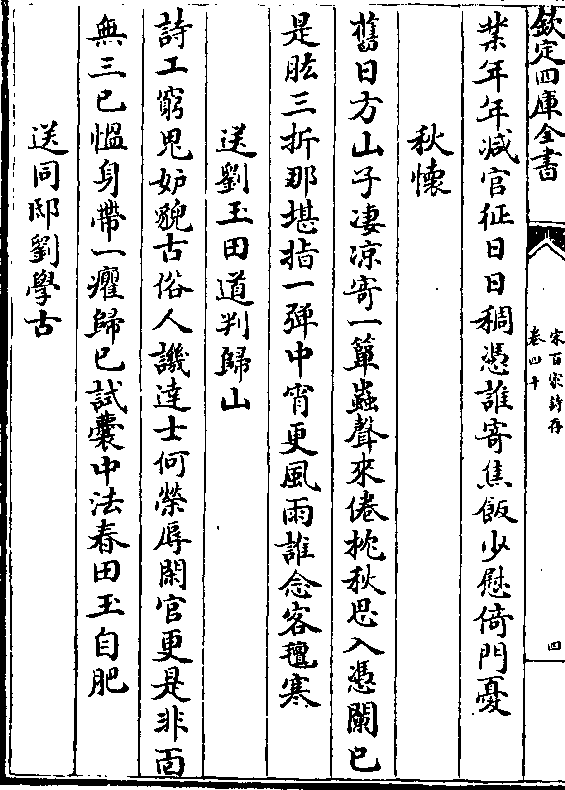 欽定四庫全書
宋百家詩存
卷四十
四
業年年減官征日日稠憑誰寄焦飯少慰倚門憂
秋懷
舊日方山子凄涼寄一簞蟲聲來倦枕秋思入憑闌已
是肱三折那堪指一彈中宵更風雨誰念客氊寒
送劉玉田道判歸山
詩工窮鬼妒貌古俗人譏達士何榮辱閑官更是非面
無三已愠身帶一癯歸已試囊中法春田玉自肥
送同邸劉學古